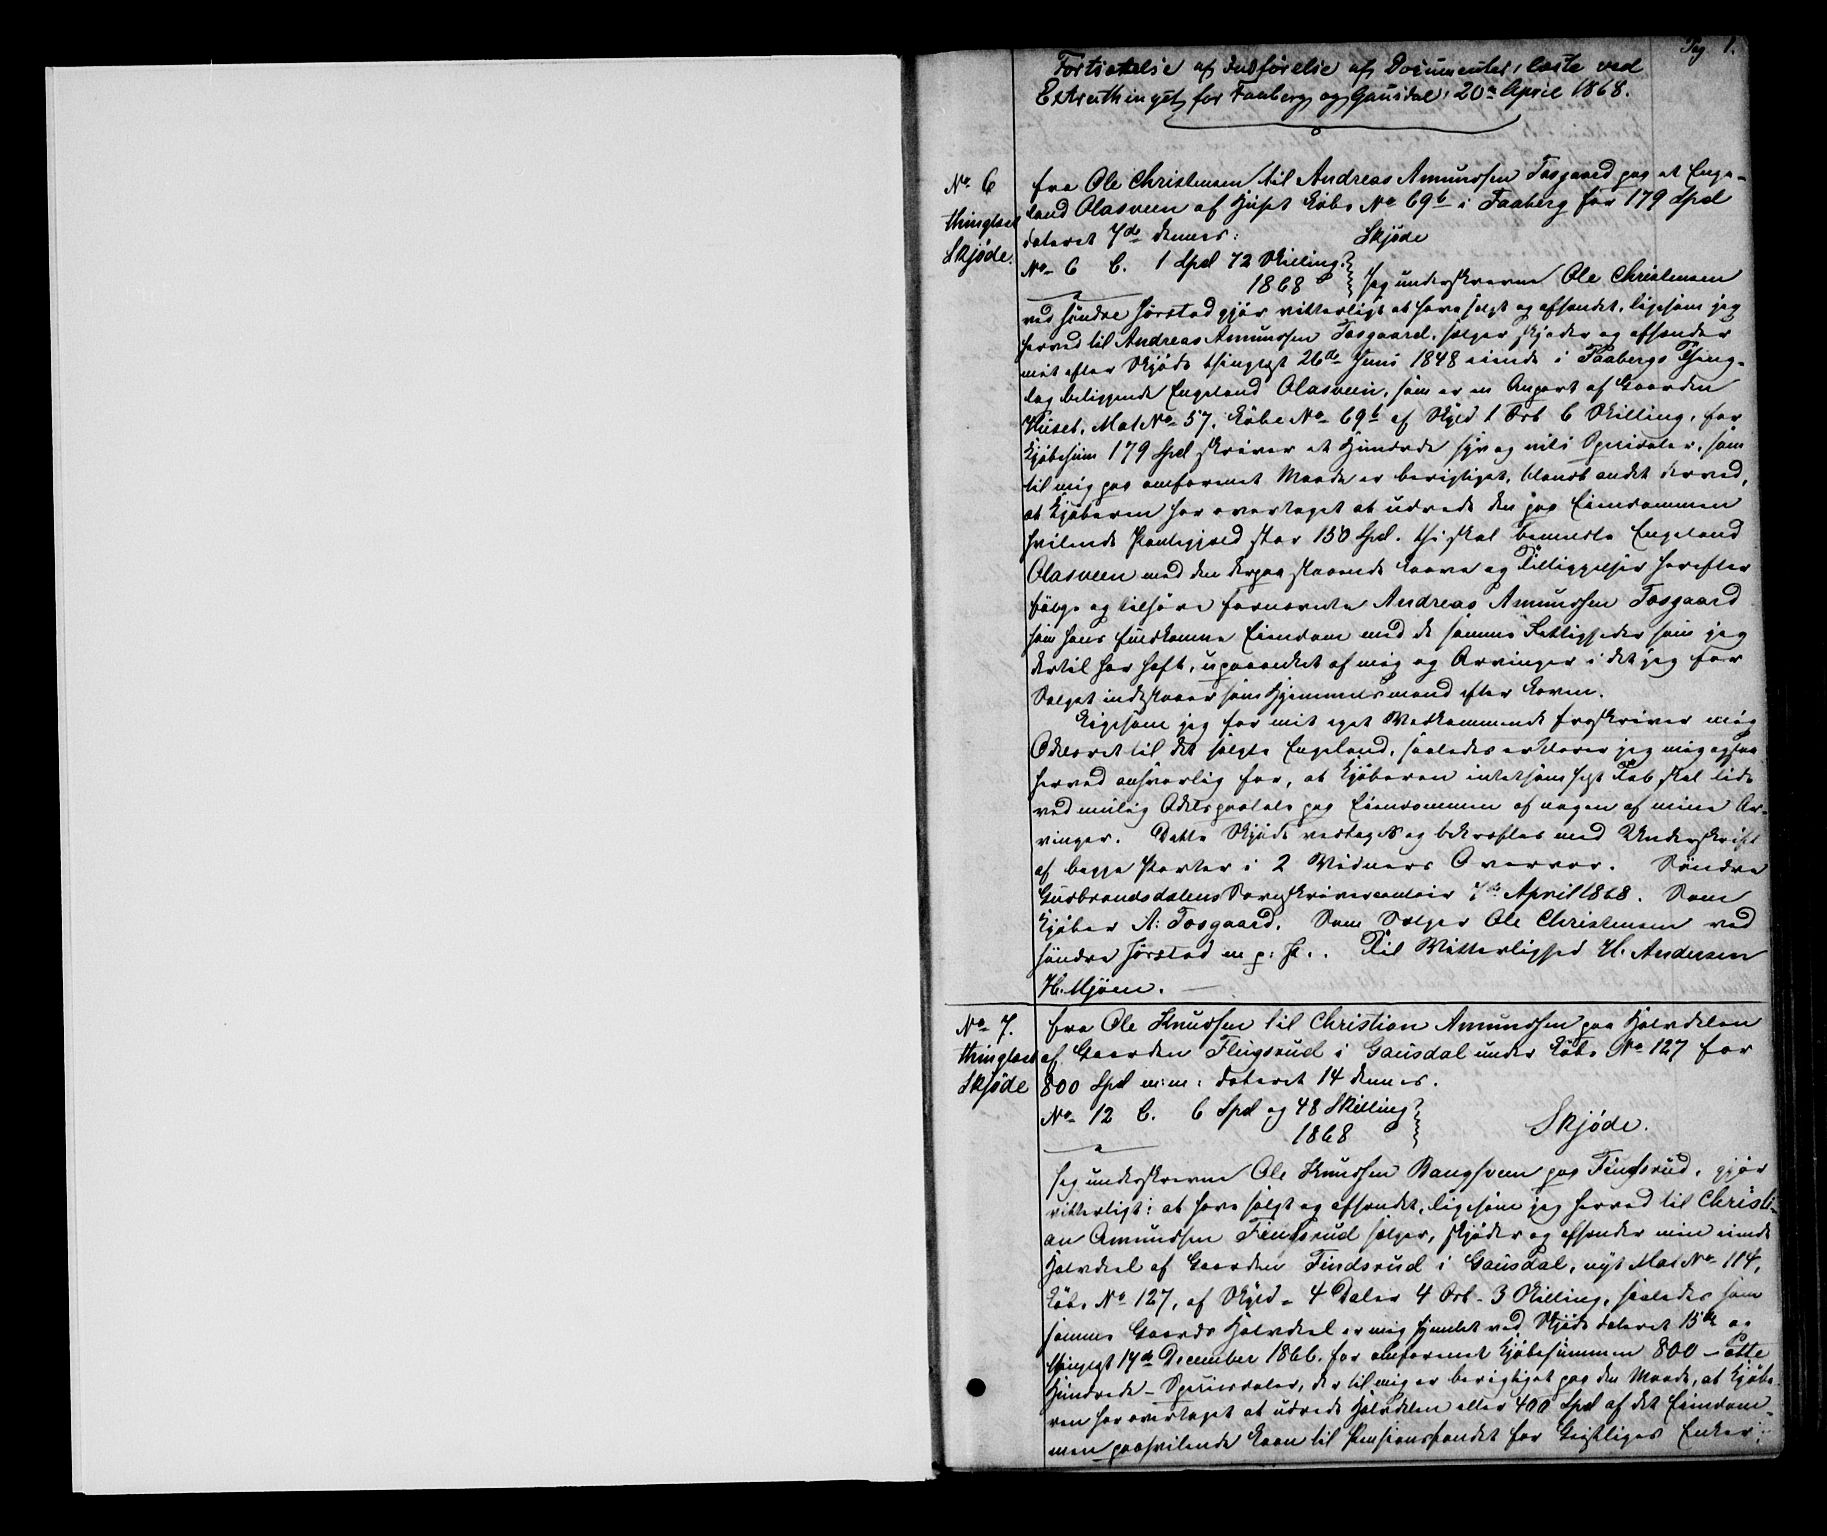 Pag 1.
Fortsættelse af Indførelse af Documenter, læste ved
Extrathinget for Faaberg og Gausdal, 20de April 1868.
No 6
thinglæst
Skjøde.
fra Ole Christensen til Andreas Amundsen Fosgaard paa et Enge-
land Olasveen af Huset Løbe No 69b i Faaberg for 179 Spd
dateret 7de dennes:
Skjøde
No 6 C. 1 Spd 72 Skilling
1868
Jeg underskrevne Ole Christensen
ved søndre Jørstad gjør vitterligt at have solgt og afhændet, ligesom jeg
herved til Andreas Amundsen Fosgaard, sælger, skjøder og afhænder
mit efter Skjøde thinglyst 26de Juni 1848 eiende i Faabergs Thing-
lag beliggende Engeland Olasveen, som er en Anpart af Gaarden
Huset, Mat No 57, Løbe No 69b af Skyld 1 Ort 6 Skilling, for
Kjøbesum 179 Spd skriver et Hundrede syv og niti Speciedaler, som
til mig paa omforenet Maade er berigtiget, blandt andet derved,
at Kjøberen har overtaget at udrede den paa Eiendommen
hvilende Pantegjæld stor 150 Spd. thi skal bemeldte Engeland
Olasveen med den derpaa staaende Laave og Tilliggelser herefter
følge og tilhøre fornævnte Andreas Amundsen Fosgaard
som hans fuldkomne Eiendom med de samme Rettigheder som jeg
dertil har haft, upaaanket af mig og Arvinger i det jeg for
Salget indestaaer som Hjemmelsmand efter Loven.
Ligesom jeg for mit eget Vedkommende fraskriver mig
Odelsret til det solgte Engeland, saaledes erklærer jeg mig ogsaa
herved ansvarlig for, at Kjøberen intetsomhelst Tab skal lide
ved mulig Odelspaatale paa Eiendommen af nogen af mine Ar-
vinger. Dette Skjøde vedtages og bekræftes med Underskrift
af begge Parter i 2 Vidners Overvær. Søndre
Gudbrandsdalens Sorenskrivercontoir 7de April 1868. Som
Kjøber A: Fosgaard. Som Sælger Ole Christensen ved
søndre Jørstad m. p: P.. Til Vitterlighed H. Andersen
H. Mjøen.
No 7.
thinglæst
Skjøde
fra Ole Knudsen til Christian Amundsen paa Halvdelen
af Gaarden Flugsrud i Gausdal under Løbe No 127 for
800 Spd m:m: dateret 14 dennes.
No 12 C. 6 Spd og 48 Skilling
1868
Skjøde.
Jeg underskrevne Ole Knudsen Bangsveen paa Findsrud, gjør
vitterligt: at have solgt og afhændet, ligesom jeg herved til Christi-
an Amundsen Findsrud sælger, skjøder og afhænder min eiende
Halvdeel af Gaarden Findsrud i Gausdal, nyt Mat No 114,
Løbe No 127, af Skyld 4 Daler 4 Ort 3 Skilling, saaledes som
samme Gaards Halvdeel er mig hjemlet ved Skjøde dateret 15de og
thinglyst 17de December 1866. for omforenet Kjøbesummen 800 - Otte
Hundrede - Speciesdaler, der til mig er berigtiget paa den Maade, at Kjøbe-
ren har overtaget at udrede Halvdelen eller 400 Spd af det Eiendom-
men paahvilende Laan til Pensionsfondet for Geistliges Enker